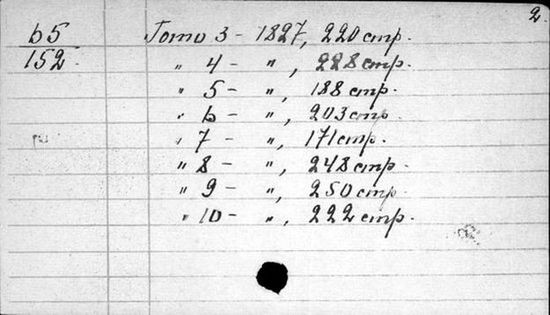 2.
b5
152
Tomo 3 - 1827, 220 стр.
" 4 - ", 228 стр.
" 5 - ", 188 стр.
" 6 - ", 203 стр.
" 7 - ", 171 стр.
" 8 - ", 248 стр.
" 9 - ", 250 стр.
" 10 - ", 222 стр.